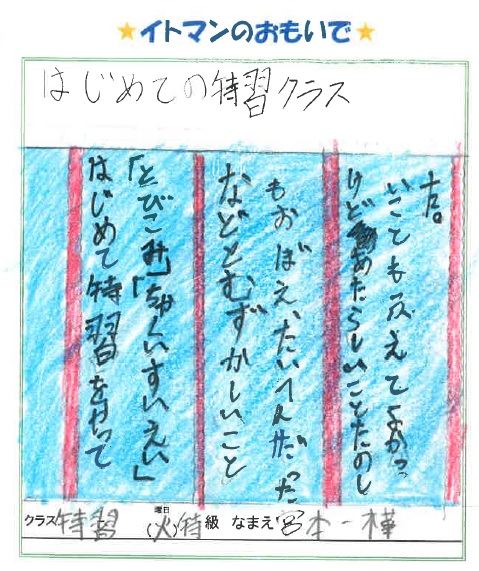 イトマンのおもいで
はじめての特習クラス
はじめて特習を行って
「とびこみ」「ちゃくいすいえい」
などとむずかしいこと
もおぼえ、たいへんだった
けどあたらしいことたのし
いことも えてよかっ
た。
クラス 特習 曜日 (火) 特 級 なまえ 宮本一樺